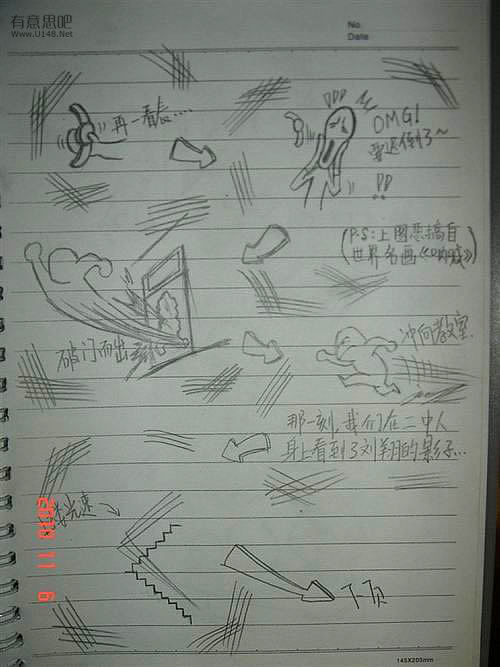 有意思吧
Www.U148.Net
No.
Date
再一看表....
OMG!
要迟到了~
(P.S:上图恶搞自
世界名画《呐喊》)
破门而出
冲向教室.
那一刻,我们在二中人
身上看到了刘翔的影子...
光速
下页
145X205mm